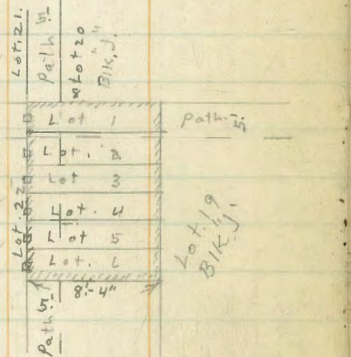 Lot. 21.
Path 5'-
Lot 20
Blk. J.
Lot 1
Path-5'-
Lot. 2
Lot 3
Lot. 4
Lot 5
Lot. 6
Lot. 22
Lot. 19
Blk. J.
8'-4"
Path 5'-